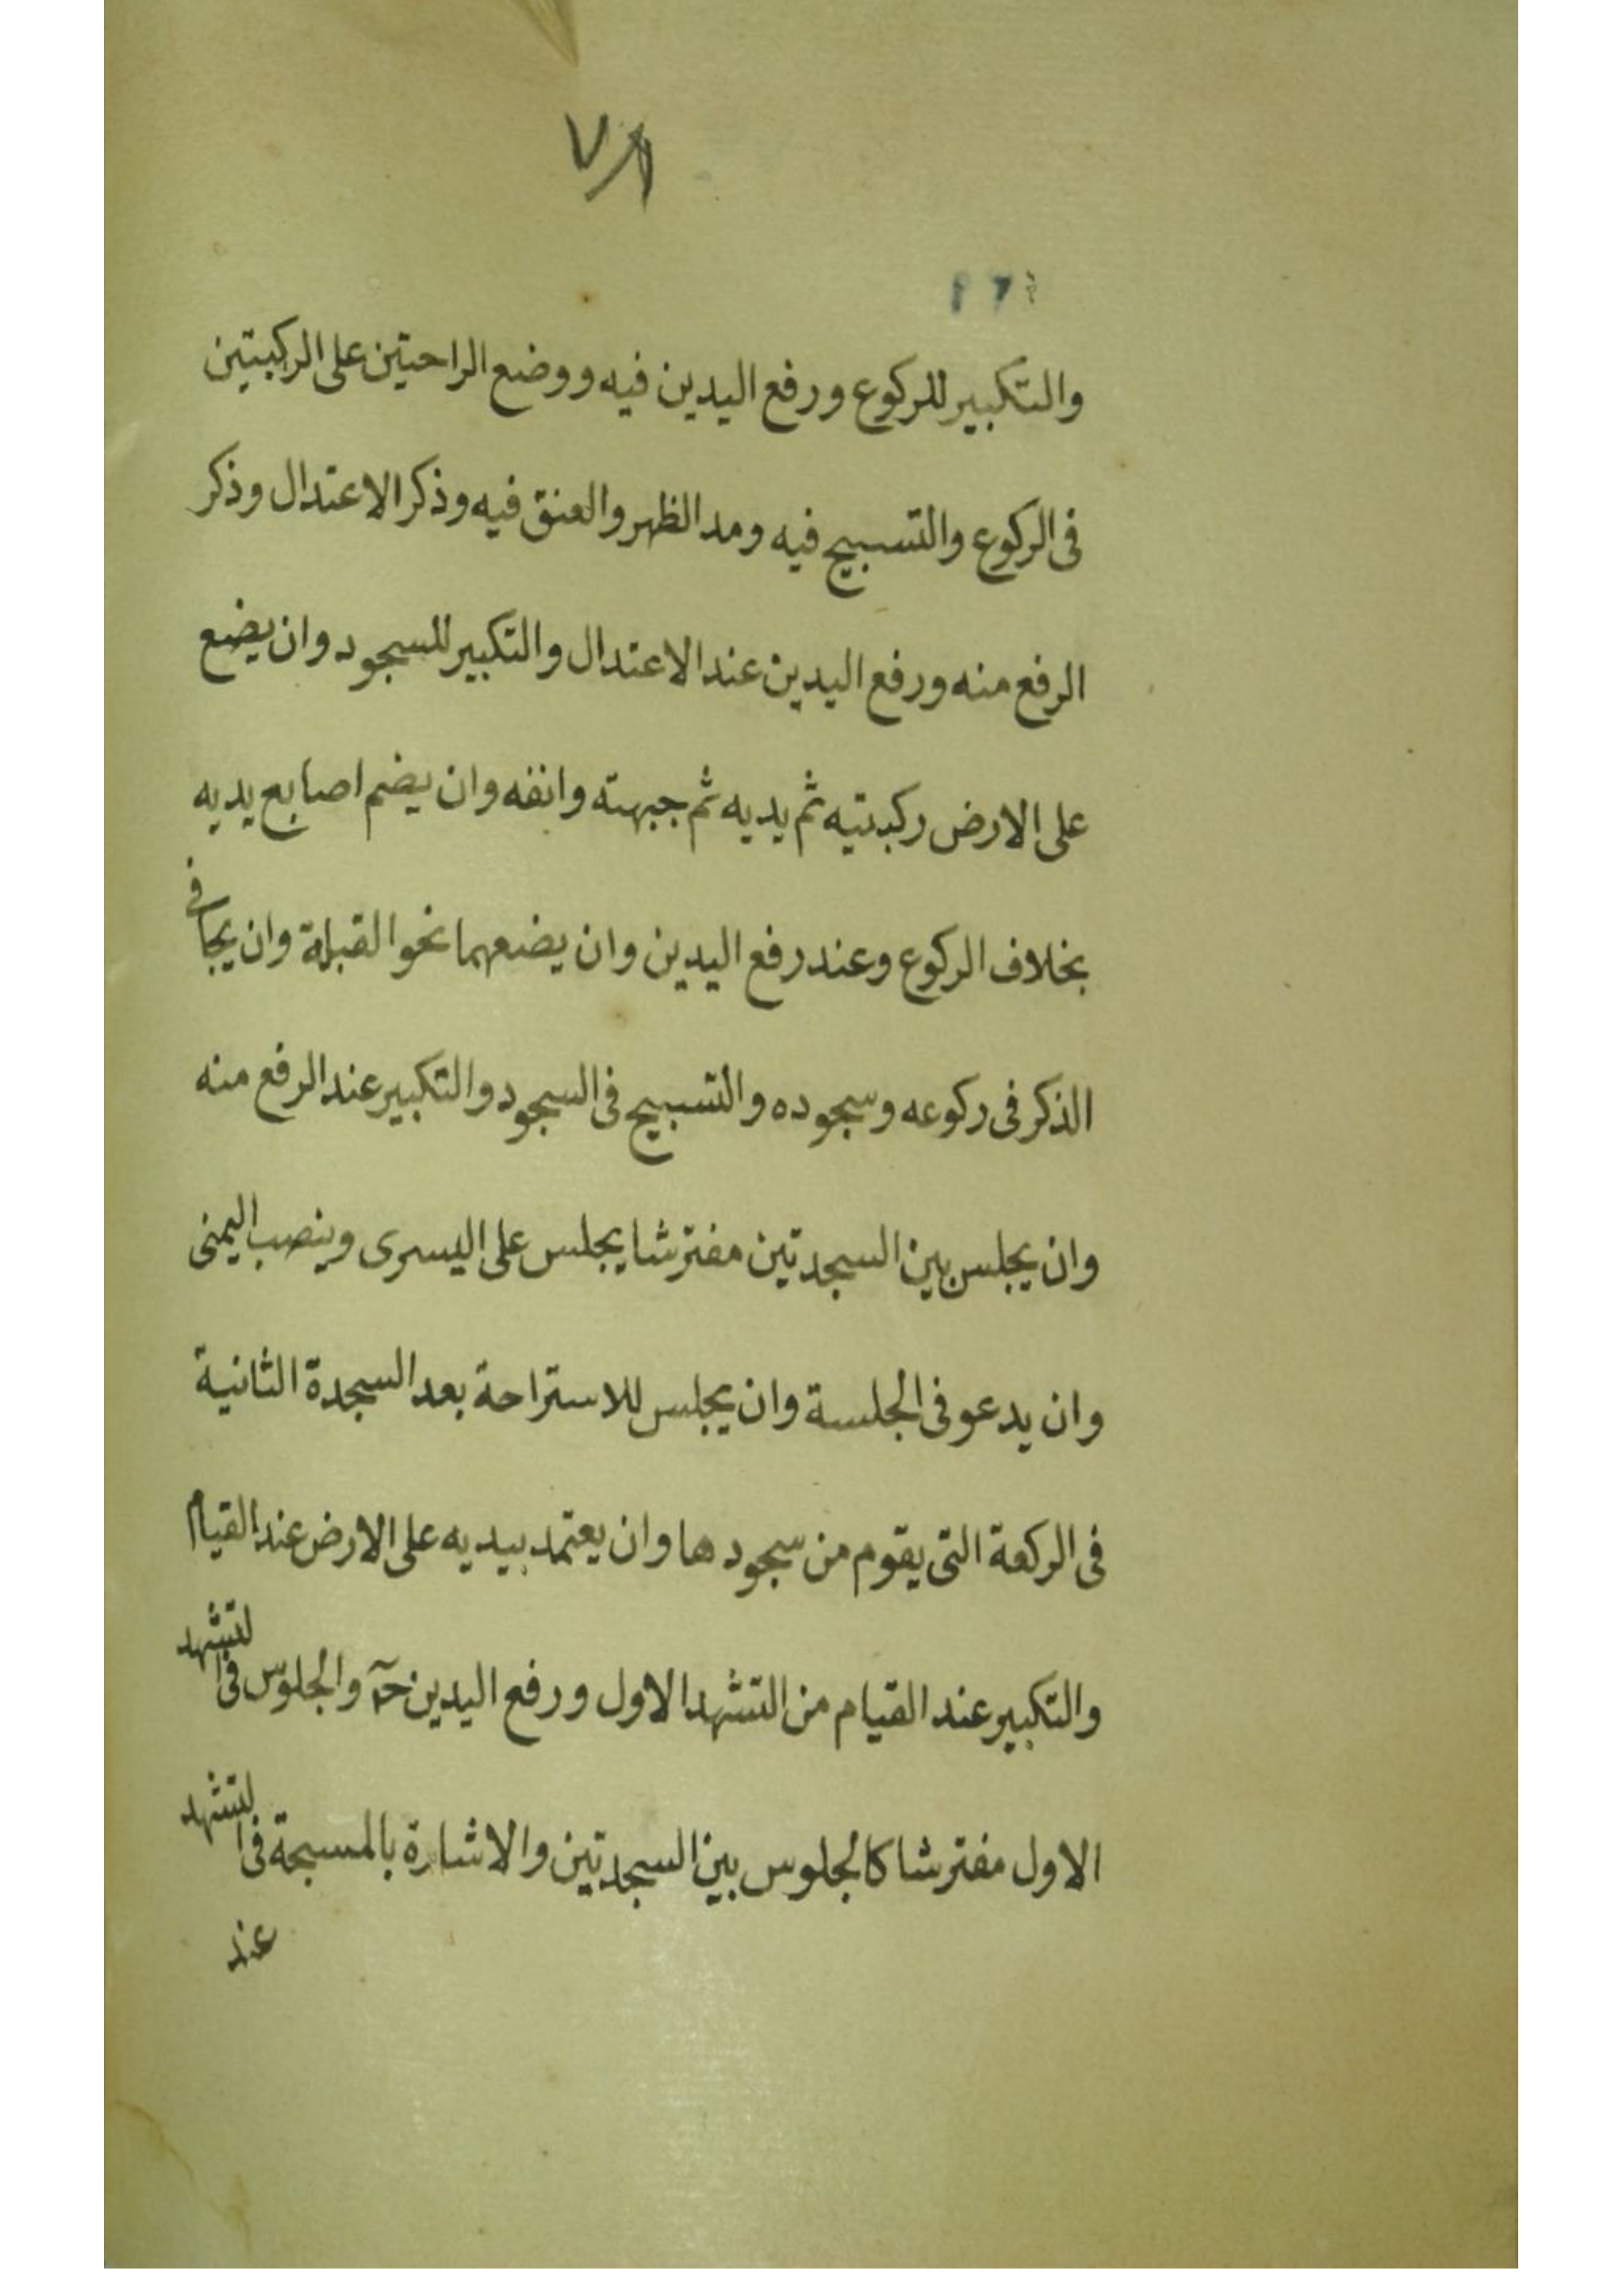 والتكبير للركوع ورفع اليدين فيه ووضع الراحتين على الركبتين
فى الركوع والتسبيح فيه ومد الظهر والعنق فيه وذكر الاعتدال وذكر
الرفع منه ورفع اليدين عند الاعتدال والتكبير للسجود وان يضع
على الارض ركبتيه ثم يديه ثم جبهته وانفه وان يضم اصابع يديه
بخلاف الركوع وعند رفع اليدين وان يضعهما نحو القبلة وان يجافى
الذكر فى ركوعه وسجوده والتسبيح فى السجود والتكبير عند الرفع منه
وان يجلس بين السجدتين مفترشا يجلس على اليسرى وينصب اليمنى
وان يدعو فى الجلسة وان يجلس للاستراحة بعد السجدة الثانية
فى الركعة التى يقوم من سجودها وان يعتمد بيديه على الارض عند القيام
والتكبير عند القيام من التشهد الاول ورفع اليدين حۤ والجلوس فى التشهد
الاول مفترشا كالجلوس بين السجدتين والاشارة بالمسبحة فى التشهد
عند